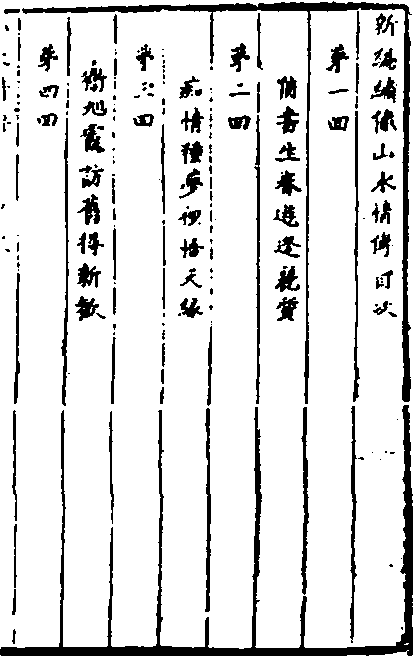 新編繡像山水情傳目次
第一回
俏書生春遊逢麗質
第二回
痴情種夢裡悟天緣
第三回
衛旭霞訪舊得新歡
第四回